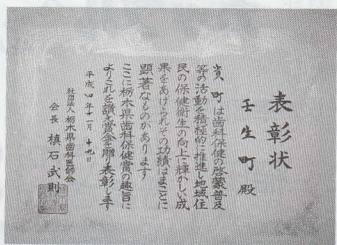 表彰状
壬生町殿
貴町は歯科保健の啓蒙普及
等の活動を積極的に推進し地域住
民の保健衛生の向上に輝かしい成
果をあげられその功績はまことに
顕著なものがあります
ここに栃木県歯科保健賞の趣旨に
よりこれを讃え賞金を贈り表彰します
平成四年十一月十九日
社団法人栃木県歯科医師会
会長槙石武則